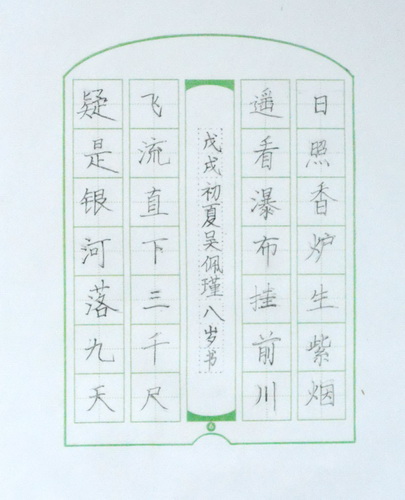 日照香炉生紫烟
遥看瀑布挂前川
戊戌初夏吴佩瑾八岁书
飞流直下三千尺
疑是银河落九天